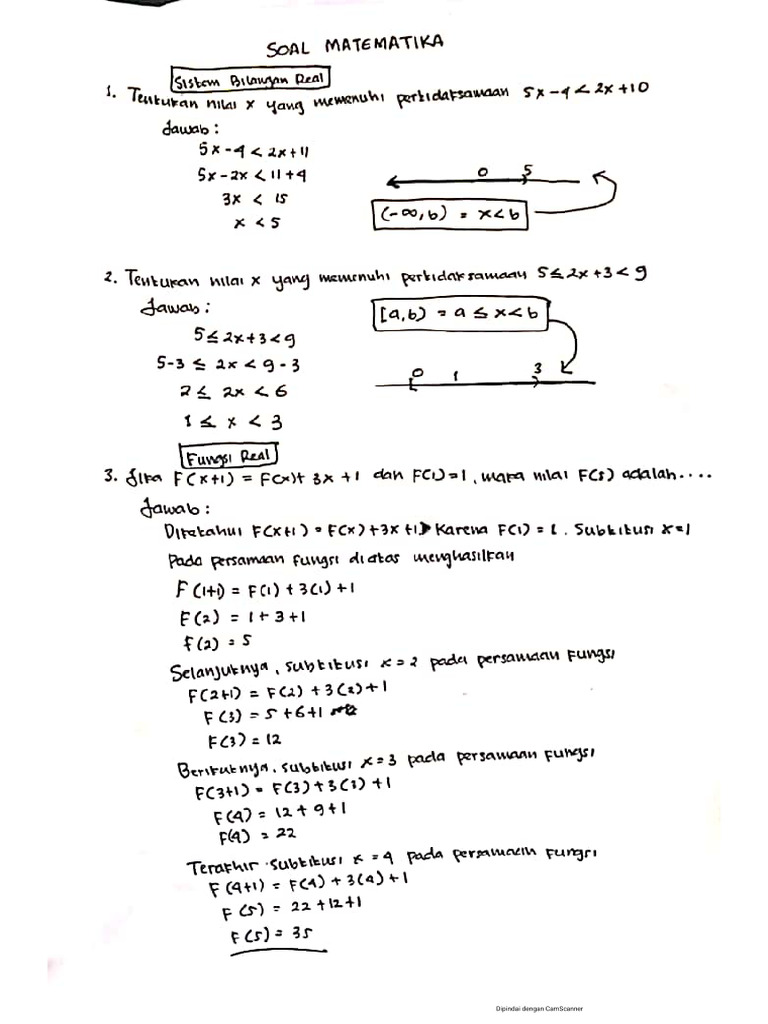 SOAL MATEMATIKA
Sistem Bilangan Real
1. Tentukan nilai x yang memenuhi pertidaksamaan 5x-4<2x+10
Jawab :
5x-4 < 2x+11
5x-2x < 11+4
3x < 15
x < 5
0 5
(-∞,b) = x<b
2. Tentukan nilai x yang memenuhi pertidaksamaan 5≤2x+3<9
Jawab :
[a,b) = a ≤ x<b
5≤2x+3<9
5-3 ≤ 2x < 9-3
2 ≤ 2x < 6
1 ≤ x < 3
0 1 3
Fungsi Real
3. Jika F(x+1) = F(x)+ 3x +1 dan F(1)=1, maka nilai F(5) adalah....
Jawab :
Diketahui F(x+1) = F(x)+3x+1 Karena F(1) = 1. Subtitusi x=1
Pada persamaan fungsi diatas menghasilkan
F(1+1) = F(1)+3(1)+1
F(2) = 1+3+1
f(2) = 5
Selanjutnya, subtitusi x=2 pada persamaan fungsi
F(2+1) = F(2) +3(2)+1
F(3) = 5+6+1
F(3) = 12
Berikutnya, subtitusi x=3 pada persamaan fungsi
F(3+1) = F(3)+3(3)+1
F(4) = 12+9+1
F(4) = 22
Terakhir subtitusi x=4 pada persamaan fungsi
F(4+1) = F(4)+3(4)+1
F(5) = 22+12+1
F(5) = 35
Dipindai dengan CamScanner